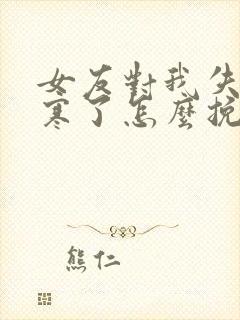 女友對我失
寒了怎麼挽
熊仁